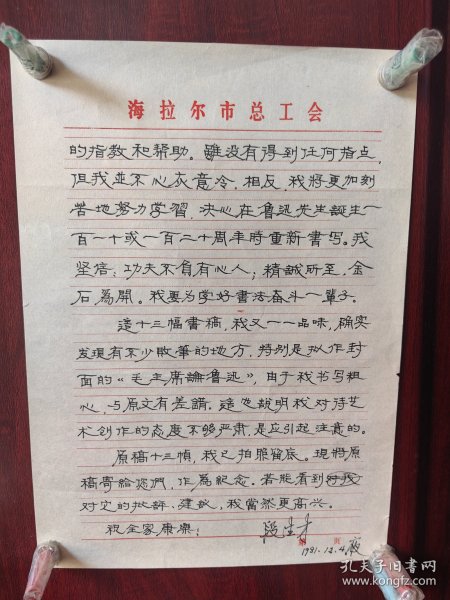 海拉尔市总工会
的指教和帮助。雖没有得到任何指点,
但我並不心灰意冷,相反,我將更加刻
苦地努力学習,决心在鲁迅先生誕生一
百一十或一百二十周年時重新書写。我
坚信:功夫不負有心人;精誠所至,金
石爲開。我要为学好書法奋斗一輩子。
這十三幅書稿,我又一一品味,确实
发現有不少敗筆的地方,特别是拟作封
面的《毛主席論鲁迅》,由于我书写粗
心,与原文有差錯。這也說明我对待艺
术创作的态度不够严肃,是应引起注意的。
原稿十三幀,我已拍照留底。現將原
稿寄給您們,作爲紀念。若能看到
对它的批評、建议,我當然更高兴。
祝全家康樂!
第 页
1981.12.4.夜
孔夫子旧书网
www.kongfz.com